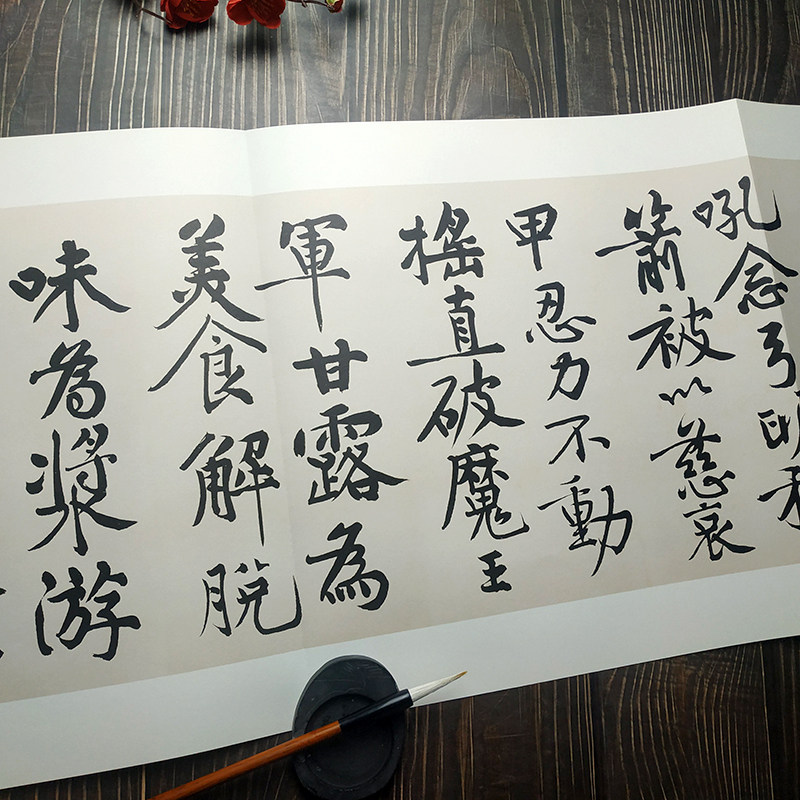 吼念弓明利
箭被以慈哀
甲忍力不動
搖直破魔王
軍甘露為
美食解脫
味為漿游